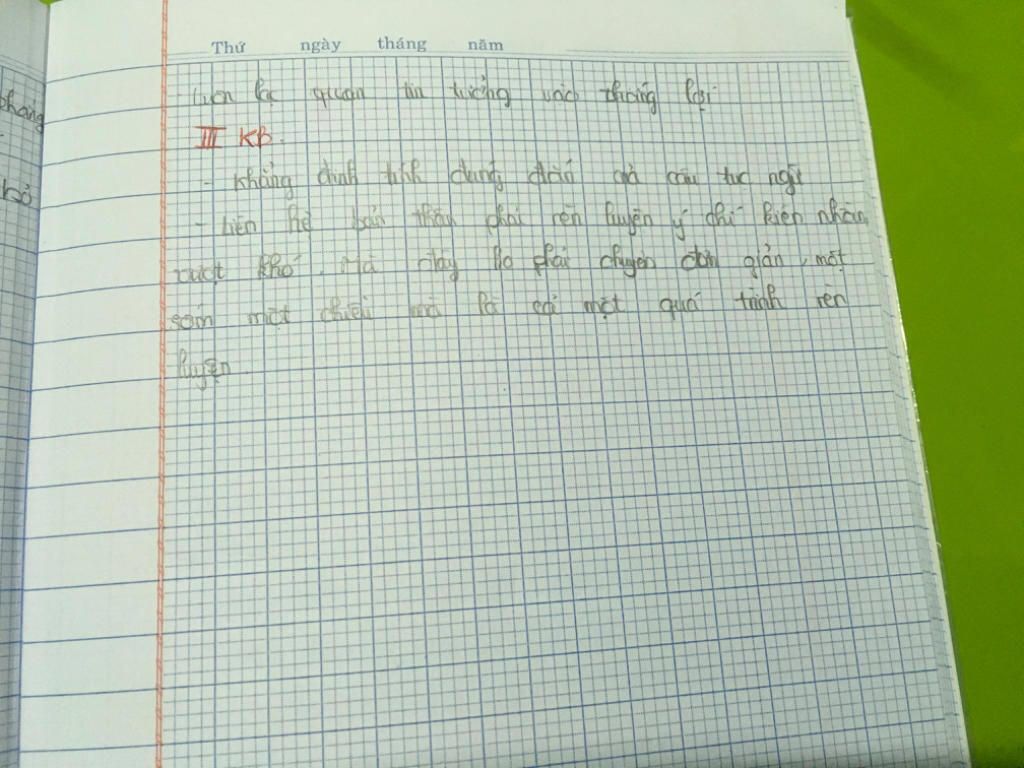 phong
bỏ
Thứ ngày tháng năm
luôn lạc quan tin tưởng vào thắng lợi.
III KB.
- Khẳng định tính đúng đắn của câu tục ngữ
- Liên hệ bản thân phải rèn luyện ý chí kiên nhẫn,
vượt khó. Mà đây ko phải chuyện đơn giản, một
sớm một chiều mà là cả một quá trình rèn
luyện.